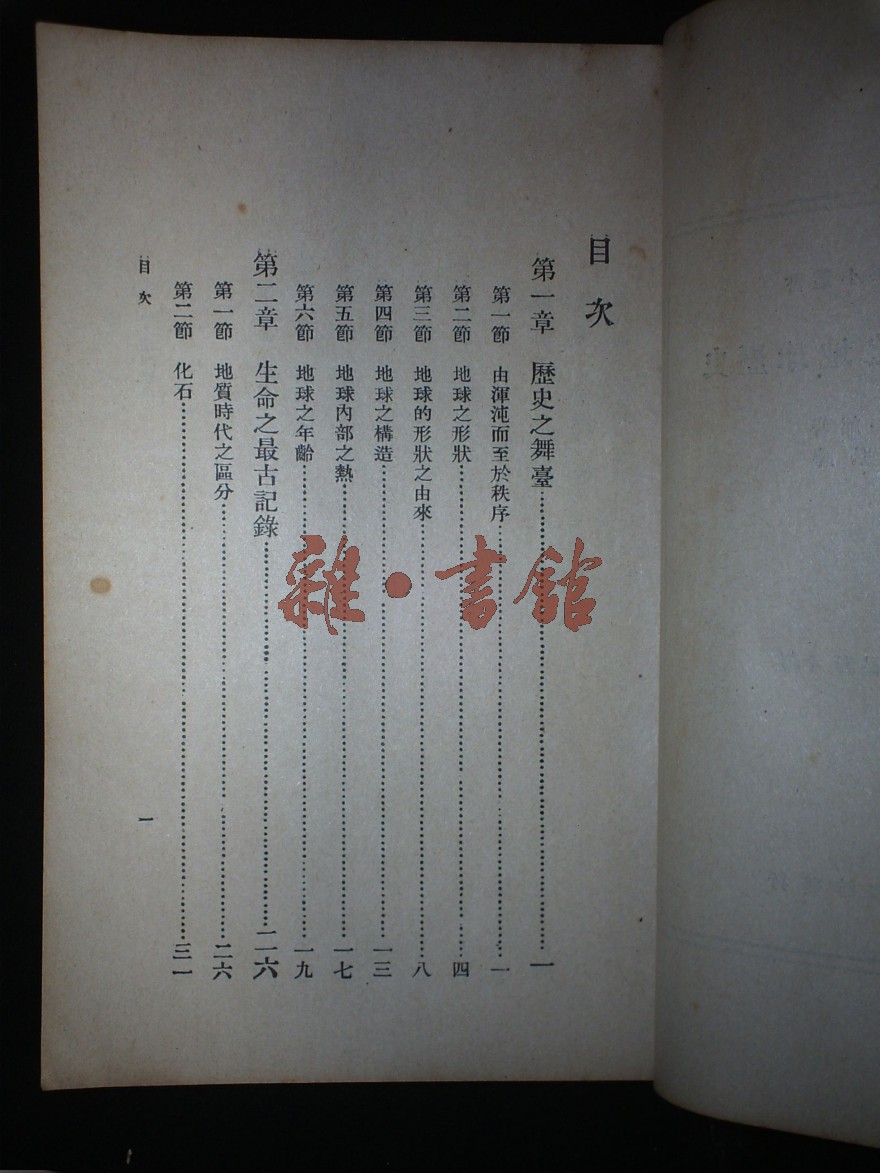 目次
第一章 歷史之舞臺……一
第一節 由渾沌而至於秩序……一
第二節 地球之形狀……四
第三節 地球的形狀之由來……八
第四節 地球之構造……一三
第五節 地球內部之熱……一七
第六節 地球之年齡……一九
第二章 生命之最古記錄……二六
第一節 地質時代之區分……二六
第二節 化石……三一
目次
一
雜·書館